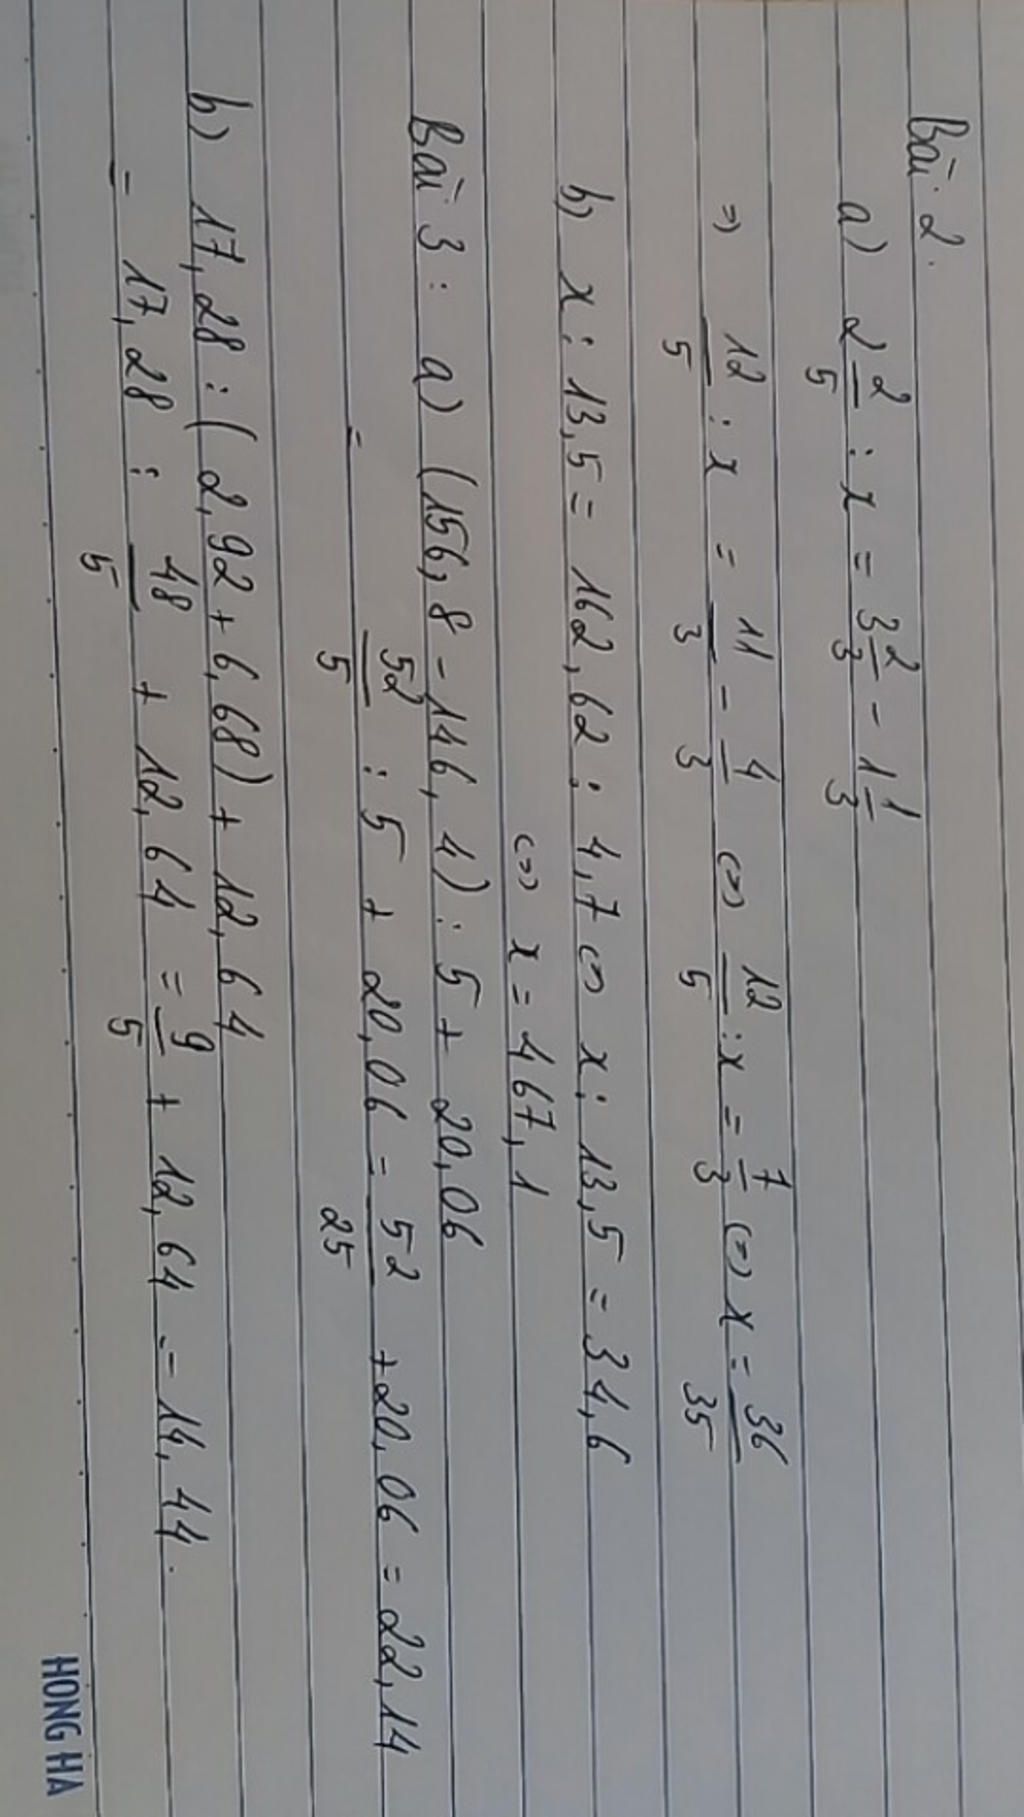 Bài 2.
a) 2 2/5 : x = 3 2/3 - 1 1/3
=> 12/5 : x = 11/3 - 4/3 <=> 12/5 : x = 7/3 <=> x = 36/35
b) x : 13,5 = 162,62 : 4,7 <=> x : 13,5 = 34,6
<=> x = 467,1
Bài 3 : a) (156,8 - 146,4) : 5 + 20,06
= 52/5 : 5 + 20,06 = 52/25 + 20,06 = 22,14
b) 17,28 : (2,92 + 6,68) + 12,64
= 17,28 : 48/5 + 12,64 = 9/5 + 12,64 = 14,44.
HONG HA